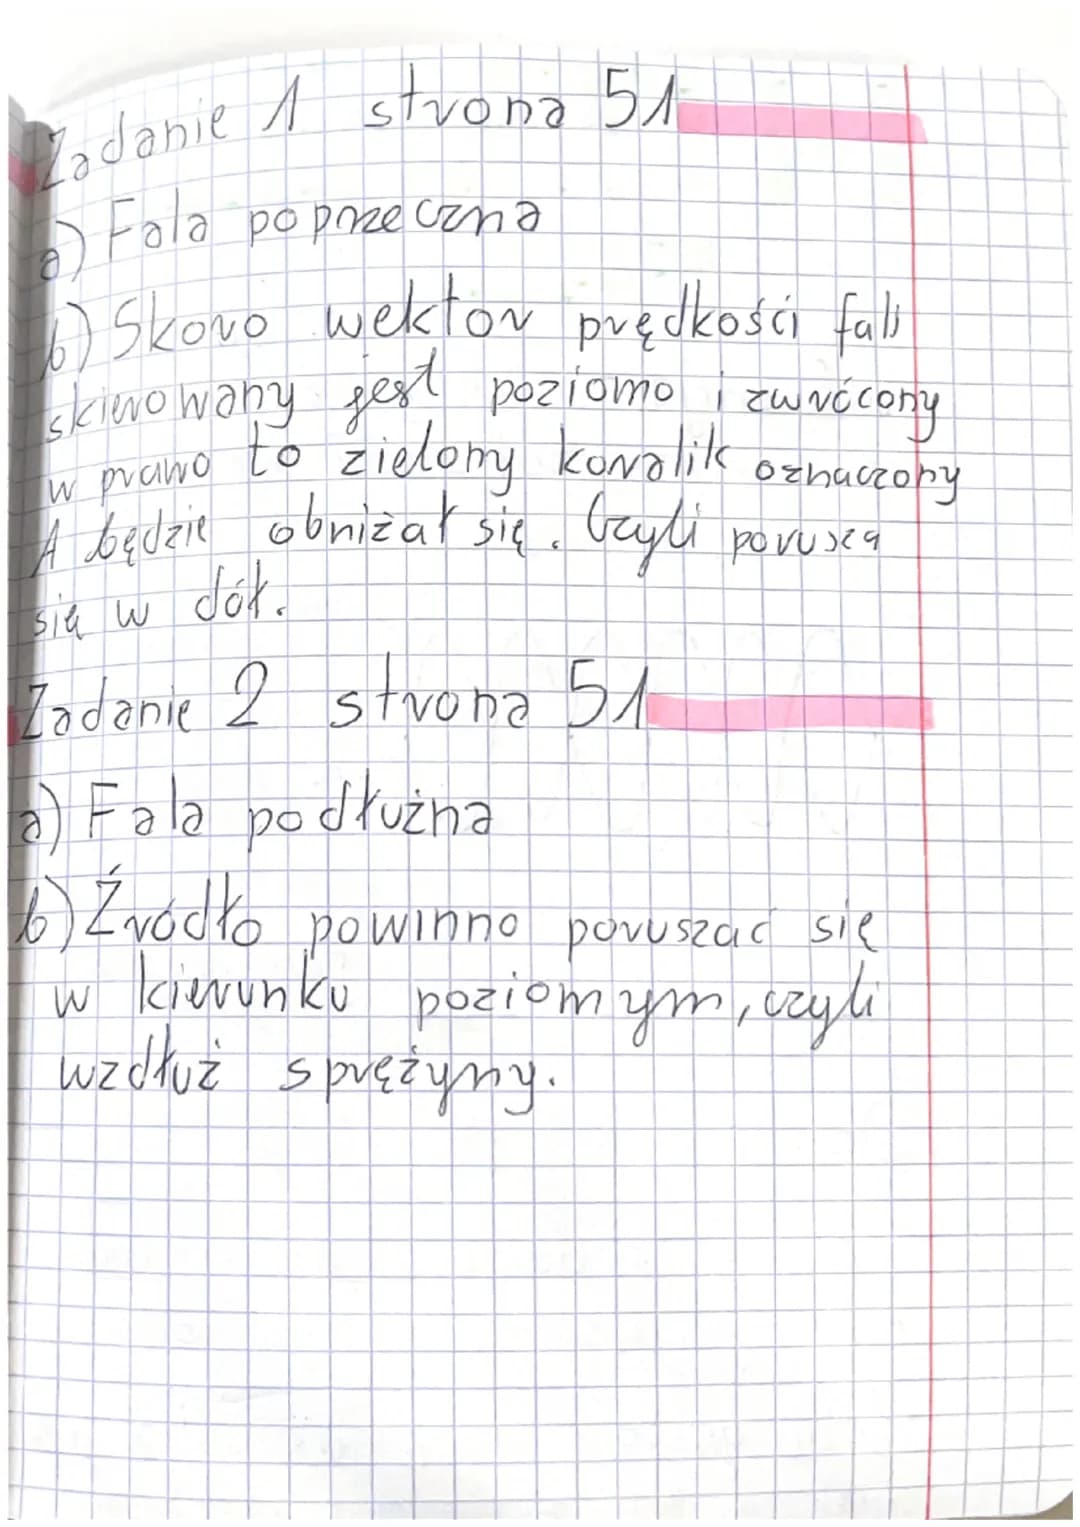 Zadanie 1 strona 51
a) Fala poprzeczna
b) Skoro wektor prędkości fali
skierowany jest poziomo i zwrócony
w prawo to zielony koralik oznaczony
A będzie obniżał się. Czyli porusza
się w dół.
Zadanie 2 strona 51
a) Fala podłużna
b) Źródło powinno poruszać się
w kierunku poziomym, czyli
wzdłuż sprężyny.